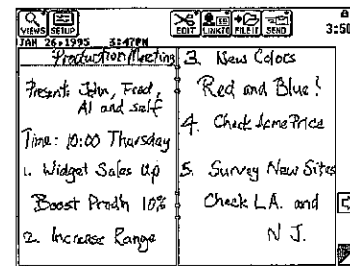 VIEWS SETUP EDIT LINKTO FILEIT SEND
JAN 26, 1995 3:47PM 3:50
Production Meeting
Present: John, Fred,
Al and self
Time: 10:00 Thursday
1. Widget Sales Up
Boost Prod'n 10%
2. Increase Range
3. New Colors
Red and Blue!
4. Check Acme Price
5. Survey New Sites
Check L.A. and
N J.